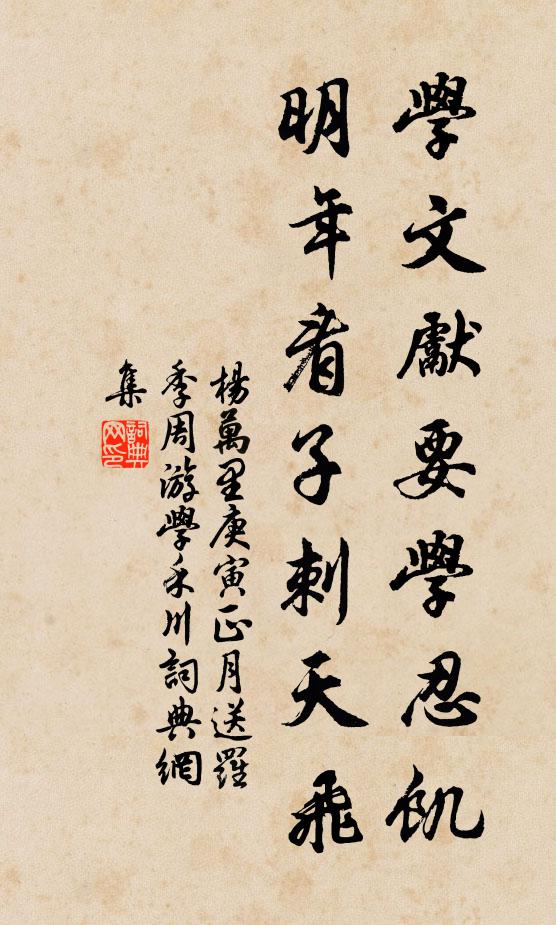 學文獻要學忍飢
明年看子刺天飛
楊萬里庚寅正月送羅
季周游學禾川詞典網
集
詞典
网印